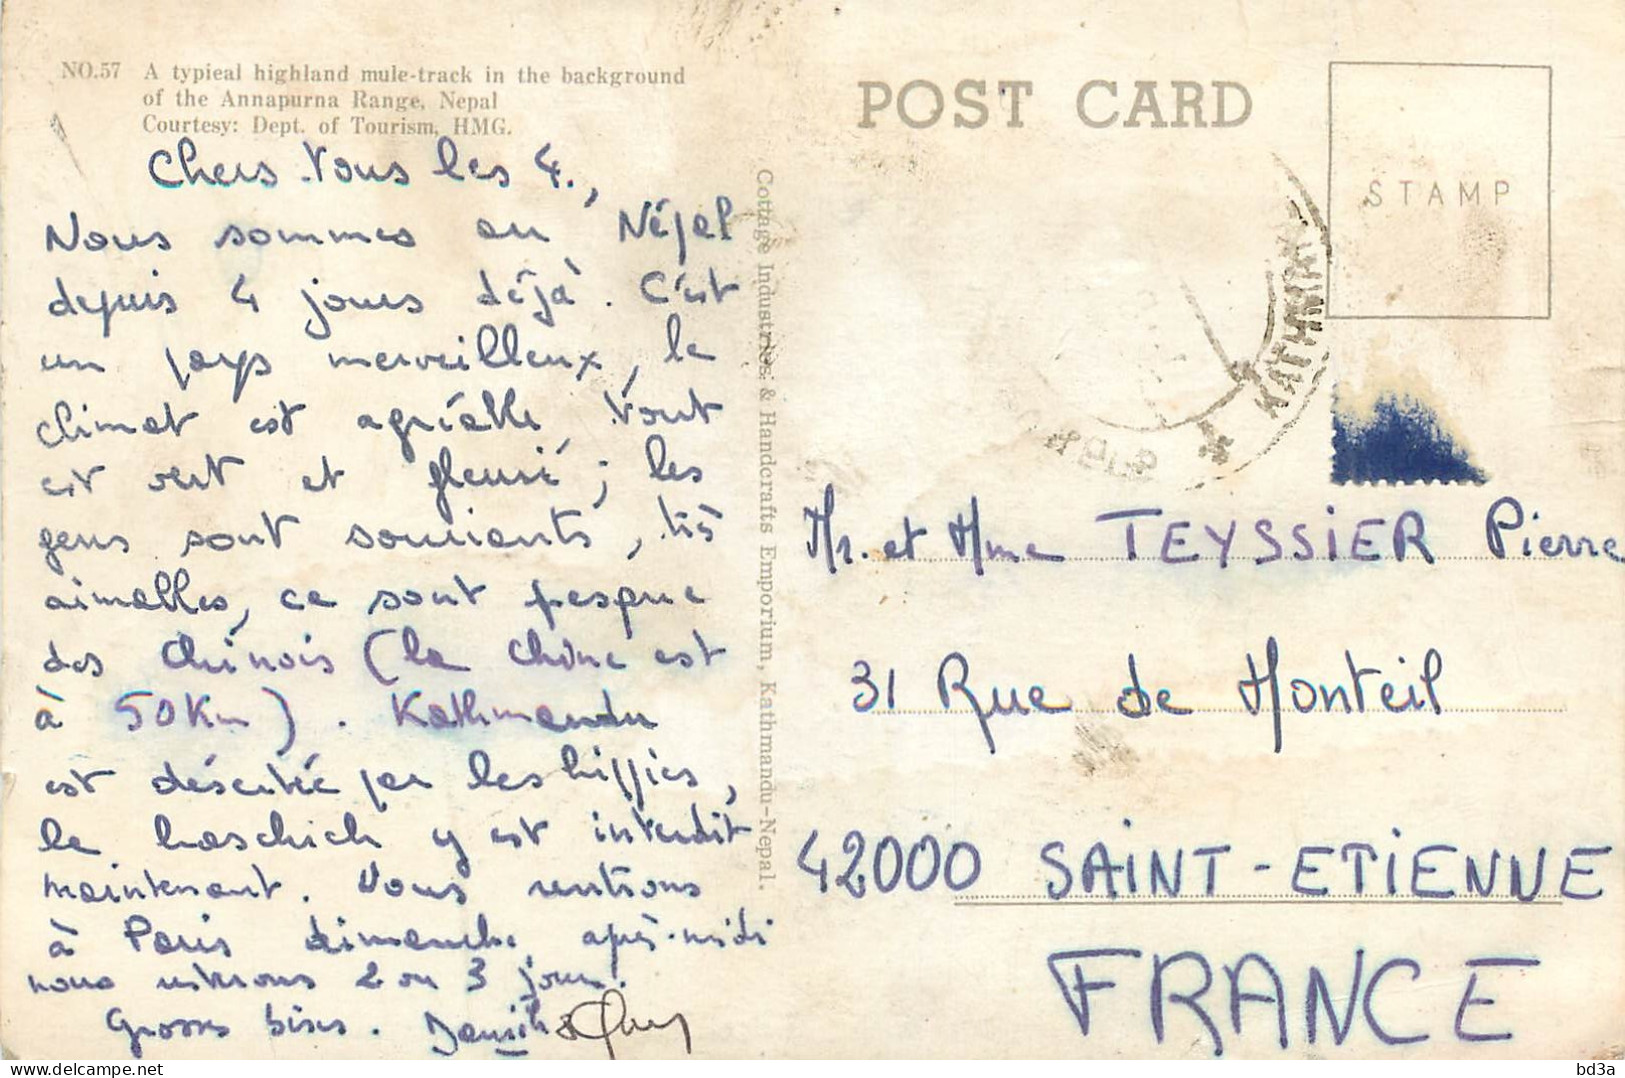 NO.57 A typical highland mule-track in the background
of the Annapurna Range, Nepal
Courtesy: Dept. of Tourism, HMG.
Chers Vous les 4.,
Nous sommes au Népal
depuis 4 jours déjà. C'est
un pays merveilleux, le
climat est agréable, tout
est vert et fleuri; les
gens sont souriants, très
aimables, ce sont presque
des Chinois (la Chine est
à 50 Km). Kathmandu
est désertée par les hippies,
le haschich y est interdit
maintenant. Nous rentrons
à Paris dimanche après-midi
nous resterons 2 ou 3 jours.
Grosses bises.
Cottage Industries & Handcrafts Emporium, Kathmandu-Nepal.
POST CARD
STAMP
KATHMANDU
Mr. et Mme TEYSSIER Pierre
31 Rue de Monteil
42000 SAINT-ETIENNE
FRANCE
delcampe.net
bd3a